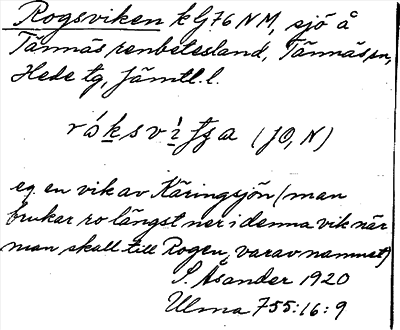 Rogsviken k G76 NM, sjö å
Tännäs renbetesland, Tännäs sn,
Hede tg, Jämtl. l.
eg. en vik av Käringsjön (man
brukar ro längst ner i denna vik när
man skall till Rogen, varav namnet)
S. Åsander 1920
Ulma 755:16:9